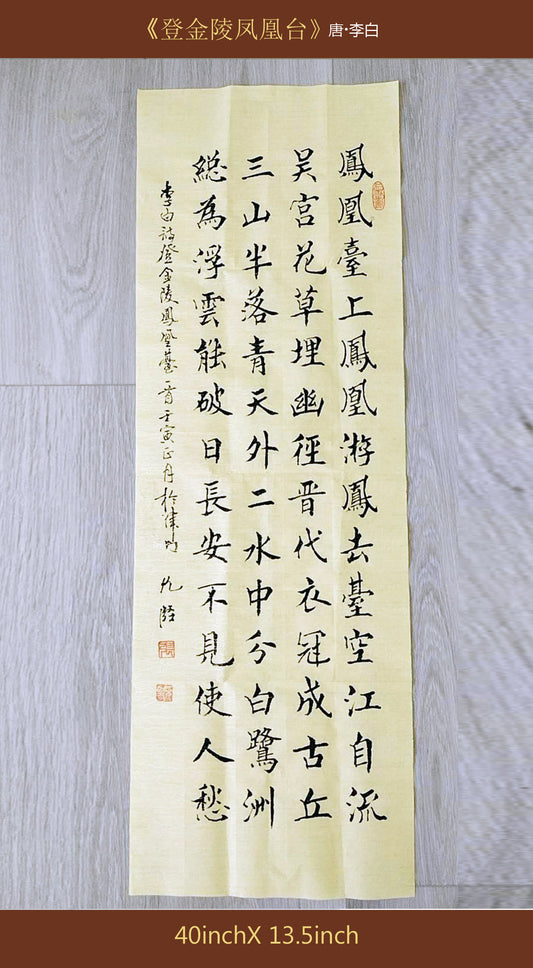 《登金陵凤凰台》唐·李白
鳳凰臺上鳳凰游鳳去臺空江自流
吴宫花草埋幽徑晋代衣冠成古丘
三山半落青天外二水中分白鷺洲
總為浮雲能破日長安不見使人愁
李白詩登金陵鳳凰臺一首壬寅正月於津
40inchX 13.5inch